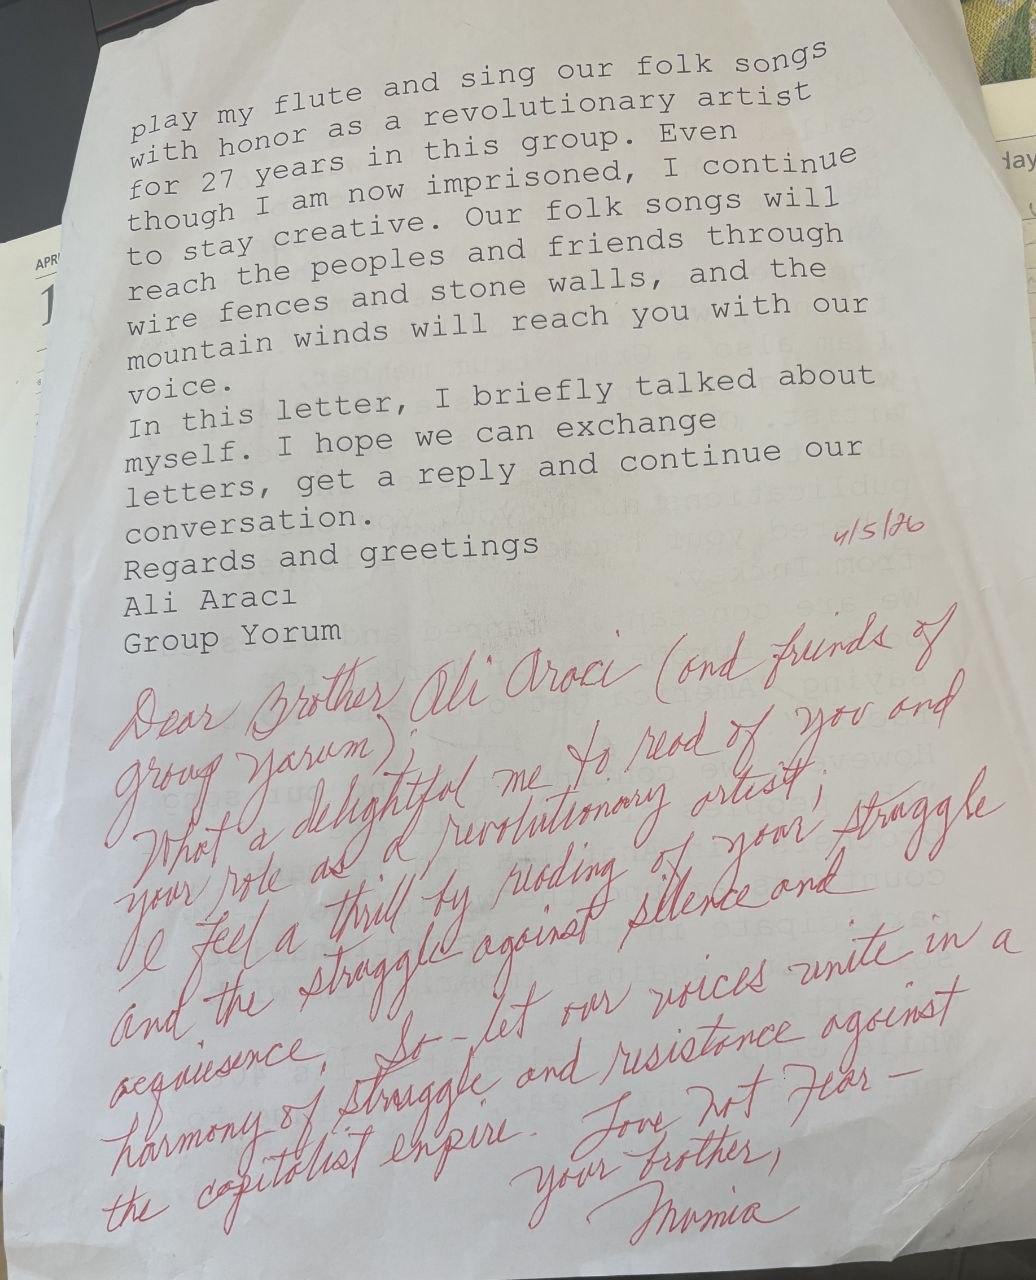 play my flute and sing our folk songs
with honor as a revolutionary artist
for 27 years in this group. Even
though I am now imprisoned, I continue
to stay creative. Our folk songs will
reach the peoples and friends through
wire fences and stone walls, and the
mountain winds will reach you with our
voice.
In this letter, I briefly talked about
myself. I hope we can exchange
letters, get a reply and continue our
conversation.
Regards and greetings
4/5/26
Ali Aracı
Group Yorum
Dear Brother Ali Araci (and freinds of
group Yarum);
What a delightful me to read of you and
your role as a revolutionary artist;
I feel a thrill by reading of your struggle
and the struggle against silence and
acquiesence. So – let our voices unite in a
harmony of struggle and resistance against
the capitalist empire. Love Not Fear –
your brother,
Mumia
APR
1
day